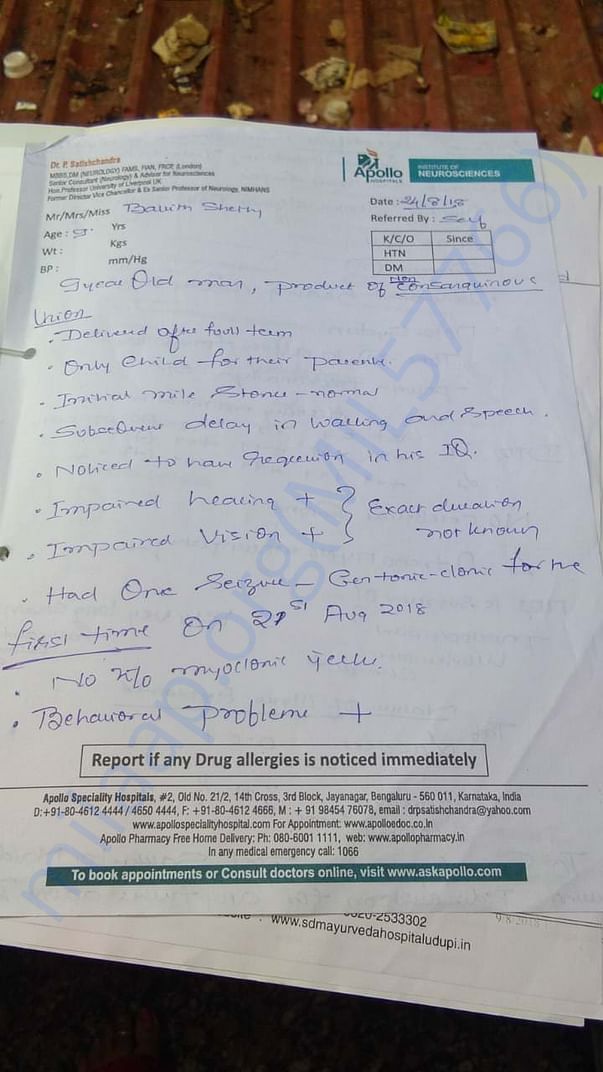 Dr. P. Satishchandra
MBBS,DM (NEUROLOGY) FAMS, FIAN, FRCP (London)
Senior Consultant (Neurology) & Advisor for Neurosciences
Hon.Professor University of Liverpool UK
Former Director Vice Chancellor & Ex Senior Professor of Neurology, NIMHANS
Apollo
HOSPITALS
INSTITUTE OF
NEUROSCIENCES
Mr/Mrs/Miss Shetty
Date : 24/8/18
Age : 9 Yrs
Referred By : Self
Wt : Kgs
K/C/O Since
HTN
DM
BP : mm/Hg
9 year Old man, product of Non Consanquinous
Union
• Delivered after full term
• Only Child for their parents.
• Initial mile Stones - normal
• Subsequent delay in walking and speech.
• Noticed to have regression in his IQ.
• Impaired hearing + } Exact duration
• Impaired Vision + not known
• Had One Seizure - Gen tonic-clonic for the
first time On 21st Aug 2018
• No H/o myoclonic jerks.
• Behavioral problems +
Report if any Drug allergies is noticed immediately
Apollo Speciality Hospitals, #2, Old No. 21/2, 14th Cross, 3rd Block, Jayanagar, Bengaluru - 560 011, Karnataka, India
D:+91-80-4612 4444 / 4650 4444, F: +91-80-4612 4666, M : + 91 98454 76078, email : drpsatishchandra@yahoo.com
www.apollospecialityhospital.com For Appointment: www.apolloedoc.co.in
Apollo Pharmacy Free Home Delivery: Ph: 080-6001 1111, web: www.apollopharmacy.in
In any medical emergency call: 1066
To book appointments or Consult doctors online, visit www.askapollo.com
0820-2533302
www.sdmayurvedahospitaludupi.in
9/8/2018
milaap.org(MIL57766)